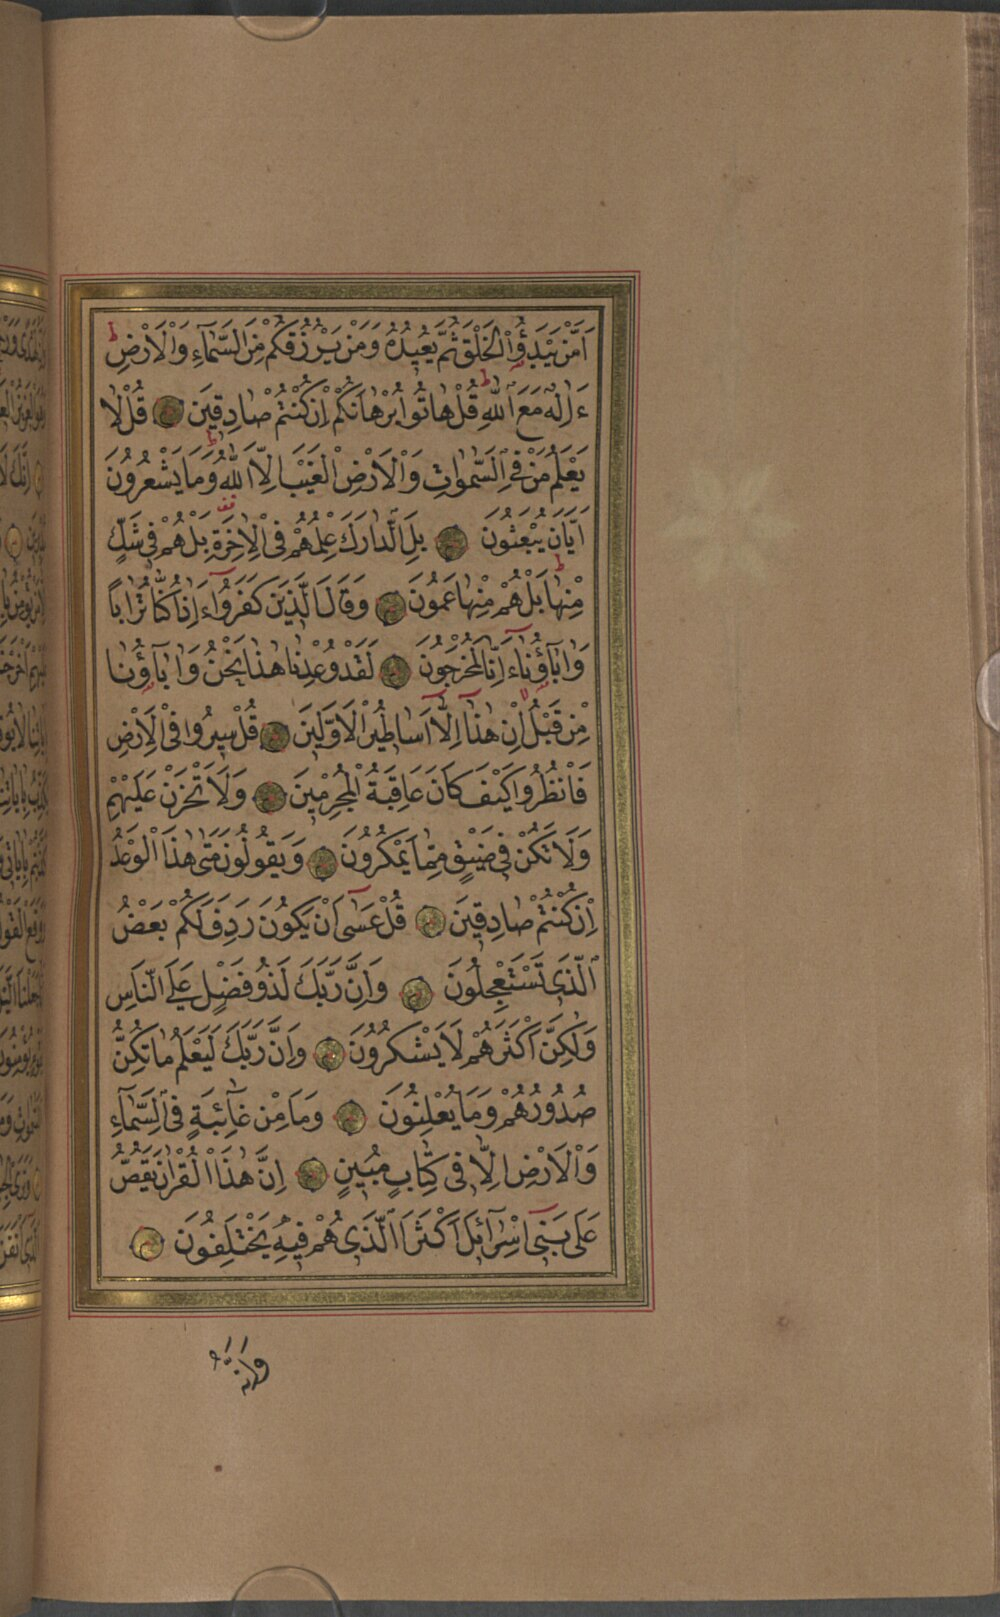 اَمَّنْ يَبْدَؤُا الْخَلْقَ ثُمَّ يُعِيدُهُ وَمَنْ يَرْزُقُكُمْ مِنَ السَّمَآءِ وَالْاَرْضِ ط
ءَاِلٰهٌ مَعَ اللّٰهِ ط قُلْ هَاتُوا بُرْهَانَكُمْ اِنْ كُنْتُمْ صَادِقِينَ قُلْ لَا
يَعْلَمُ مَنْ فِي السَّمٰوَاتِ وَالْاَرْضِ الْغَيْبَ اِلَّا اللّٰهُ ط وَمَا يَشْعُرُونَ
اَيَّانَ يُبْعَثُونَ بَلِ ادَّارَكَ عِلْمُهُمْ فِي الْاٰخِرَةِ قف بَلْ هُمْ فِي شَكٍّ
مِنْهَا ط بَلْ هُمْ مِنْهَا عَمُونَ وَقَالَ الَّذِينَ كَفَرُوآ ءَاِذَا كُنَّا تُرَابًا
وَاٰبَآؤُنَآ اَئِنَّا لَمُخْرَجُونَ لَقَدْ وُعِدْنَا هٰذَا نَحْنُ وَاٰبَآؤُنَا
مِنْ قَبْلُ اِنْ هٰذَآ اِلَّآ اَسَاطِيرُ الْاَوَّلِينَ قُلْ سِيرُوا فِي الْاَرْضِ
فَانْظُرُوا كَيْفَ كَانَ عَاقِبَةُ الْمُجْرِمِينَ وَلَا تَحْزَنْ عَلَيْهِمْ
وَلَا تَكُنْ فِي ضَيْقٍ مِمَّا يَمْكُرُونَ وَيَقُولُونَ مَتٰى هٰذَا الْوَعْدُ
اِنْ كُنْتُمْ صَادِقِينَ قُلْ عَسٰٓى اَنْ يَكُونَ رَدِفَ لَكُمْ بَعْضُ
الَّذِي تَسْتَعْجِلُونَ وَاِنَّ رَبَّكَ لَذُو فَضْلٍ عَلَى النَّاسِ
وَلٰكِنَّ اَكْثَرَهُمْ لَا يَشْكُرُونَ وَاِنَّ رَبَّكَ لَيَعْلَمُ مَا تُكِنُّ
صُدُورُهُمْ وَمَا يُعْلِنُونَ وَمَا مِنْ غَآئِبَةٍ فِي السَّمَآءِ
وَالْاَرْضِ اِلَّا فِي كِتَابٍ مُبِينٍ اِنَّ هٰذَا الْقُرْاٰنَ يَقُصُّ
عَلٰى بَنِيٓ اِسْرَآئِلَ اَكْثَرَ الَّذِي هُمْ فِيهِ يَخْتَلِفُونَ
وَاِنَّهُ